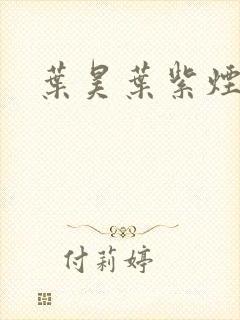 葉昊葉紫煙
付莉婷